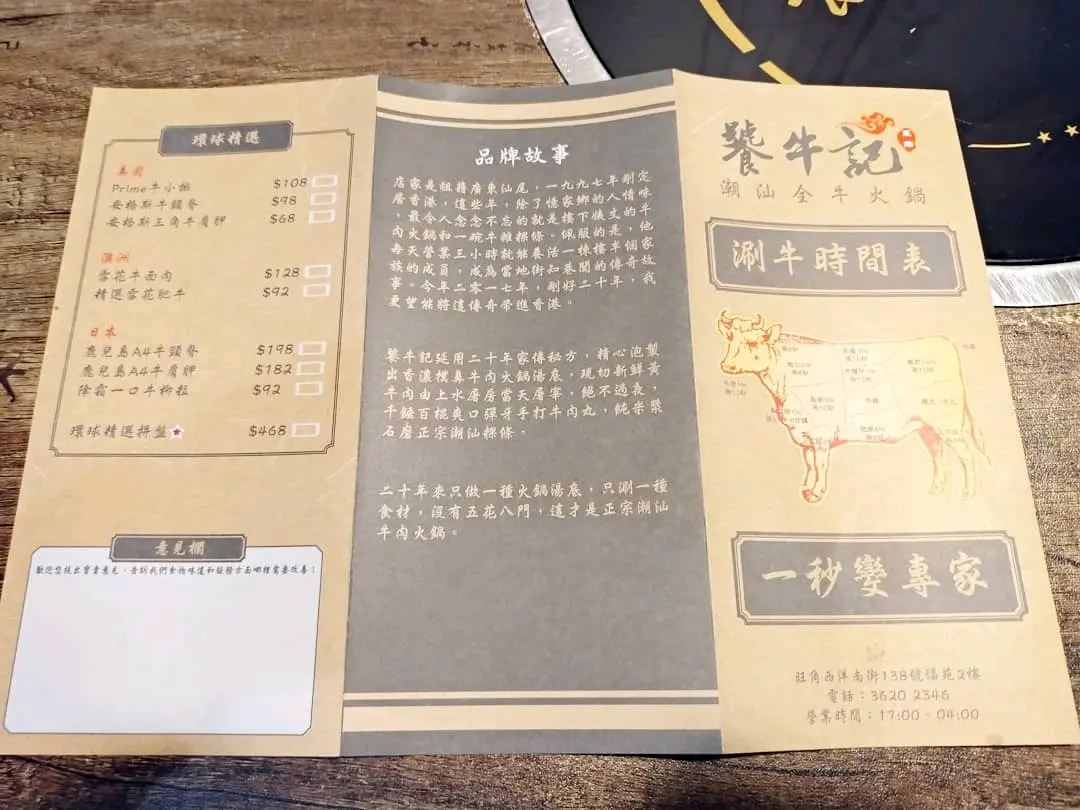 環球精選
美國
Prime牛小排 $108
安格斯牛頸脊 $98
安格斯三角牛肩胛 $68
澳洲
雪花牛面肉 $128
精選雪花肥牛 $92
日本
鹿兒島A4牛頸脊 $198
鹿兒島A4牛肩胛 $182
除霜一口牛柳粒 $92
環球精選拼盤 $468
意見欄
歡迎您提出寶貴意見，告訴我們食物味道和服務方面哪裡需要改善！
品牌故事
店家是祖籍廣東汕尾，一九九七年剛定
居香港，這些年，除了憶家鄉的人情味
，最令人念念不忘的就是樓下姨丈的牛
肉火鍋和一碗牛雜粿條。佩服的是，他
每天營業三小時就能養活一棟樓半個家
族的成員，成為當地街知巷聞的傳奇故
事。今年二零一七年，剛好二十年，我
更望能將這傳奇帶進香港。
饕牛記延用二十年家傳秘方，精心泡製
出香濃撲鼻牛肉火鍋湯底，現切新鮮黃
牛肉由上水屠房當天屠宰，絕不過夜，
千錘百棍爽口彈牙手打牛肉丸，純米漿
石磨正宗潮汕粿條。
二十年來只做一種火鍋湯底，只涮一種
食材，沒有五花八門，這才是正宗潮汕
牛肉火鍋。
饕牛記
潮汕全牛火鍋
涮牛時間表
一秒變專家
旺角西洋菜南街138號福苑2樓
電話：3620 2346
營業時間：17:00 - 04:00